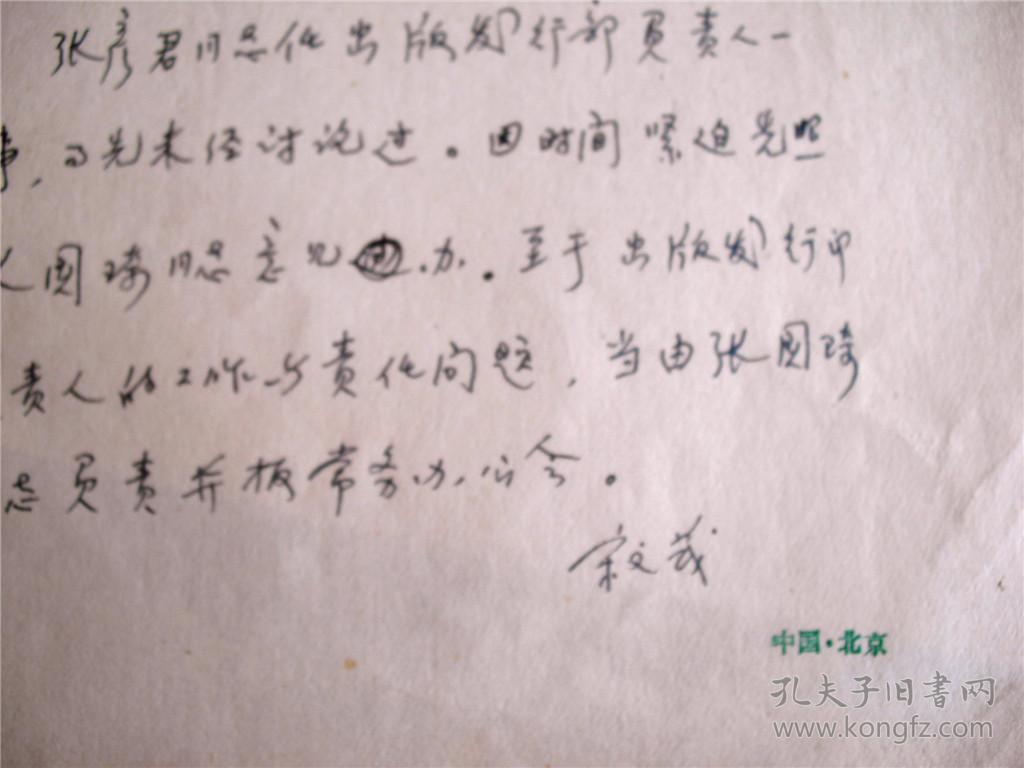 张彦君同志任出版发行部负责人一
事，事先未经讨论过。因时间紧迫先照
国琦同志意见办。至于出版发行
责人的工作与责任问题，当由张国琦
志负责并报常务办公会。
中国·北京
孔夫子旧书网
www.kongfz.com